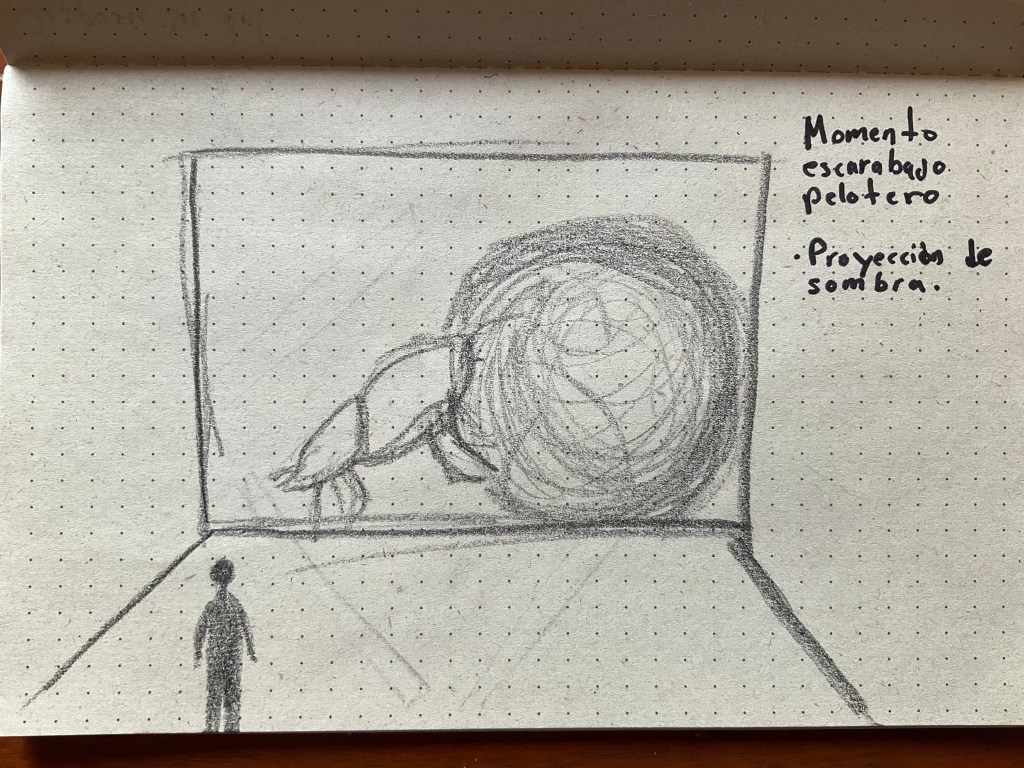 Momento
escarabajo
pelotero
· Proyección de
sombra.